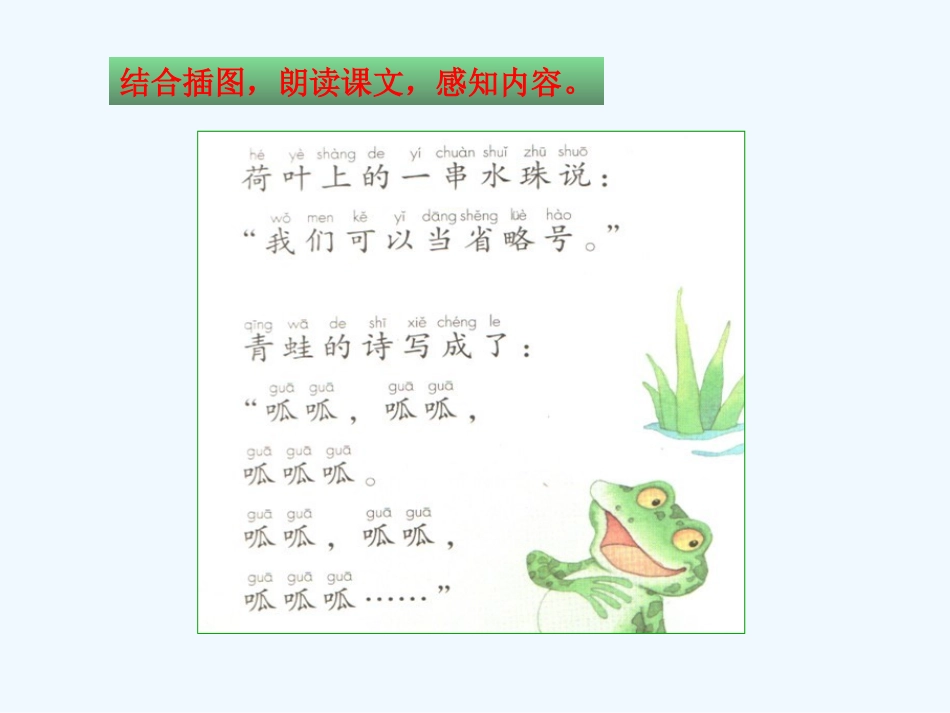 结合插图，朗读课文，感知内容。
hé yè shàng de yí chuàn shuǐ zhū shuō
荷叶上的一串水珠说：
wǒ men kě yǐ dāng shěng lüè hào
“我们可以当省略号。”
qīng wā de shī xiě chéng le
青蛙的诗写成了：
guā guā guā guā
“呱呱，呱呱，
guā guā guā
呱呱呱。
guā guā guā guā
呱呱，呱呱，
guā guā guā
呱呱呱……”